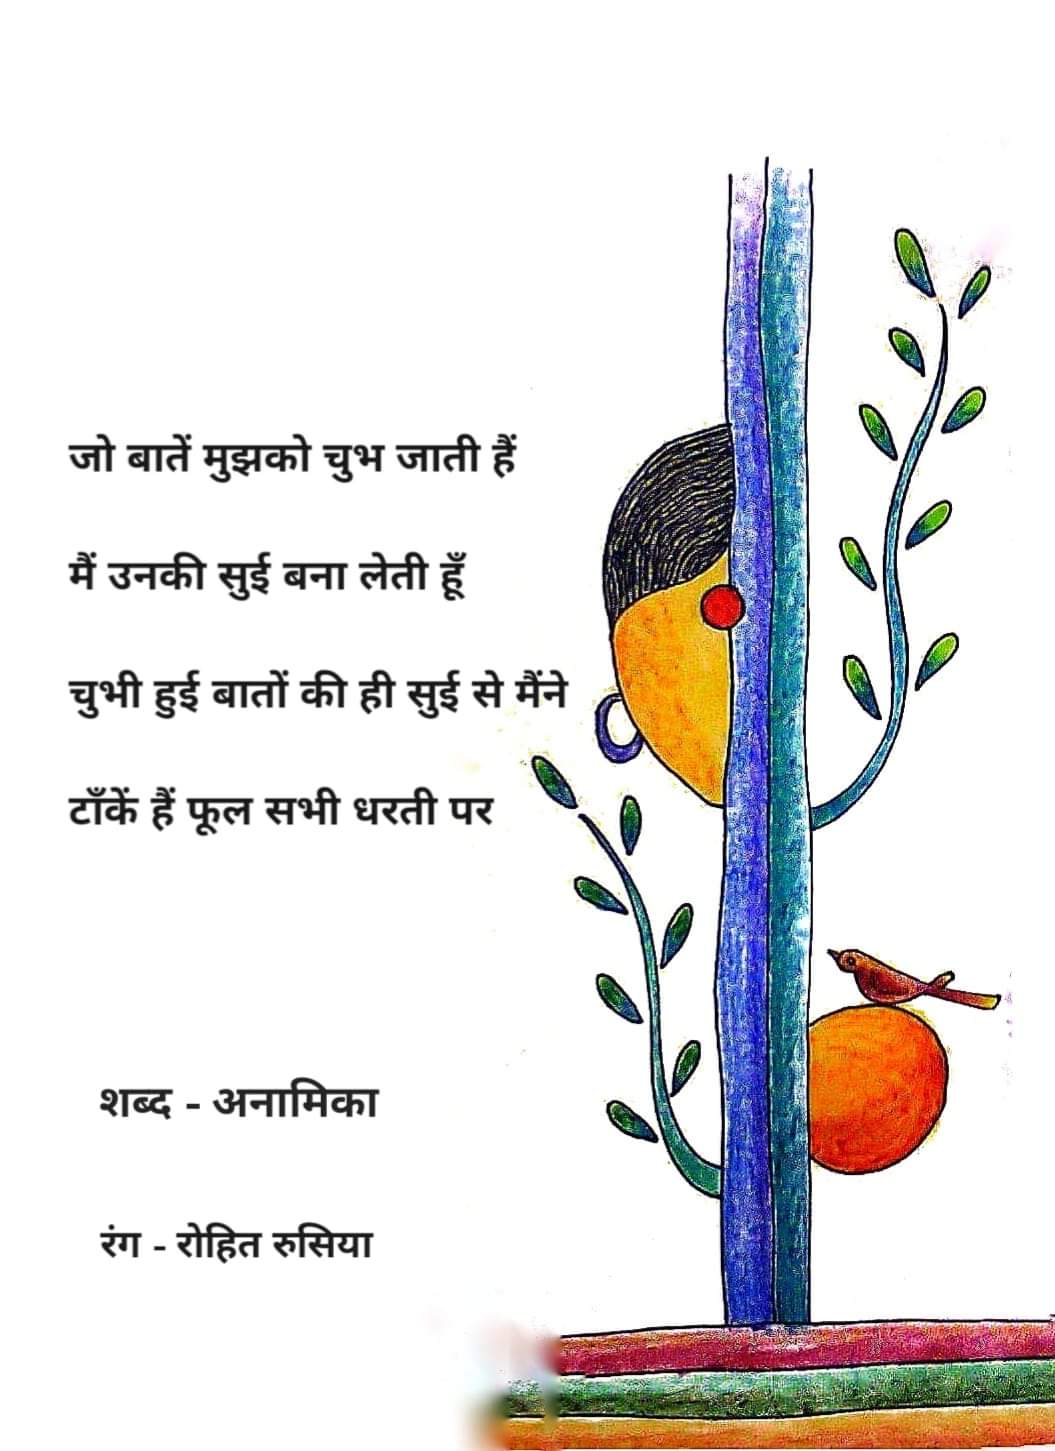 जो बातें मुझको चुभ जाती हैं
मैं उनकी सुई बना लेती हूँ
चुभी हुई बातों की ही सुई से मैंने
टाँकें हैं फूल सभी धरती पर
शब्द - अनामिका
रंग - रोहित रुसिया